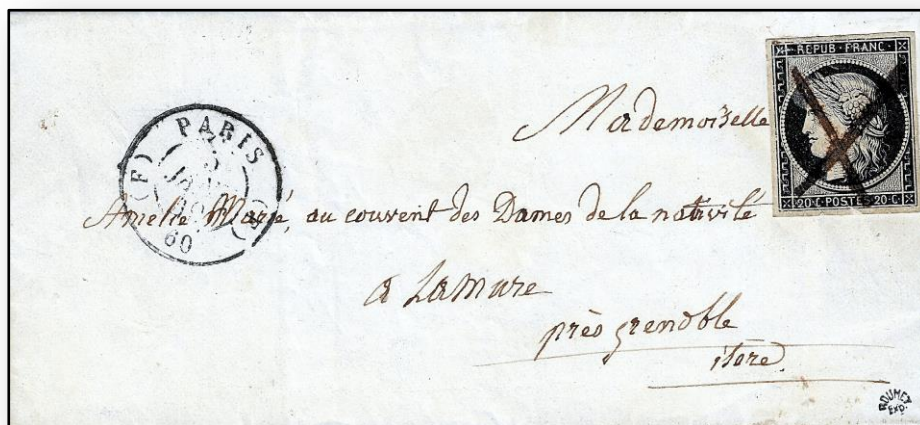 REPUB·FRANC·
20·C·POSTES 20·C·
PARIS
(F)
60
Mademoiselle
Amelie Marié, au couvent des Dames de la nativité
a Lamure
près grenoble
isere.
ROUMET
Exp.